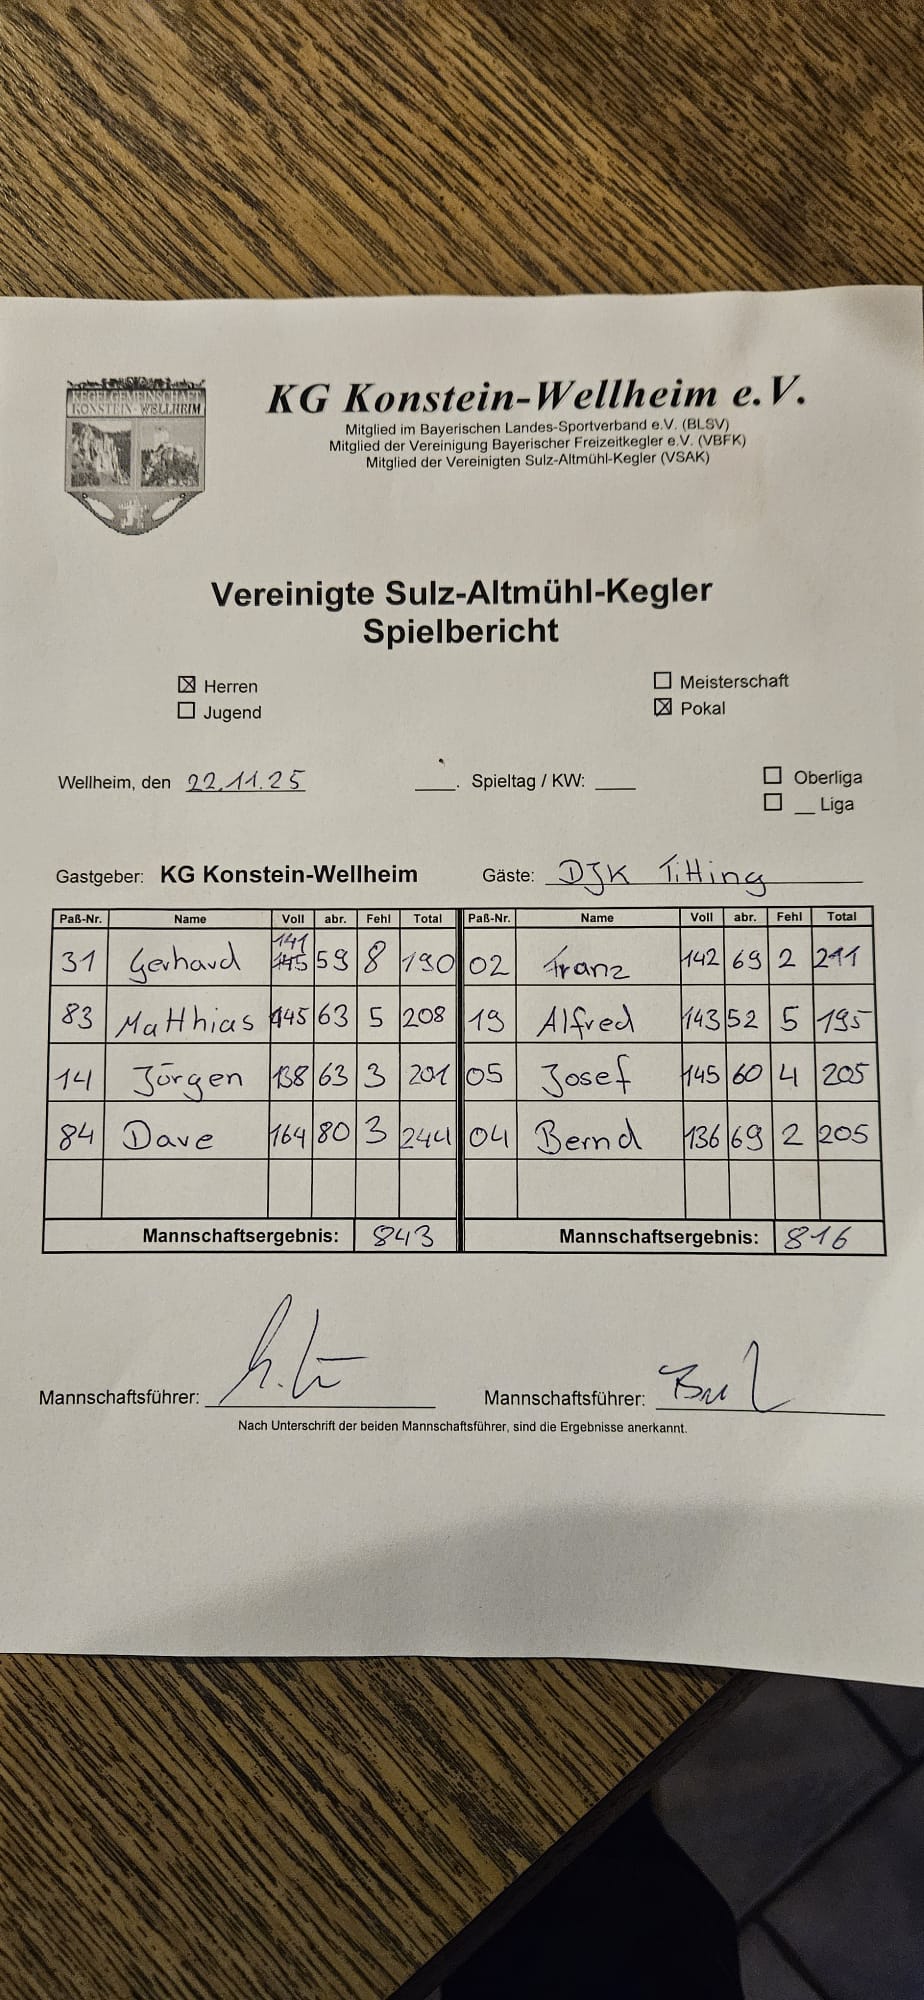 KEGELGEMEINSCHAFT
KONSTEIN-WELLHEIM
KG Konstein-Wellheim e.V.
Mitglied im Bayerischen Landes-Sportverband e.V. (BLSV)
Mitglied der Vereinigung Bayerischer Freizeitkegler e.V. (VBFK)
Mitglied der Vereinigten Sulz-Altmühl-Kegler (VSAK)
Vereinigte Sulz-Altmühl-Kegler
Spielbericht
☒ Herren ☐ Meisterschaft
☐ Jugend ☒ Pokal
Wellheim, den 22.11.25 ___. Spieltag / KW: ___ ☐ Oberliga
☐ __ Liga
Gastgeber: KG Konstein-Wellheim Gäste: DJK Titting
Paß-Nr. Name Voll abr. Fehl Total Paß-Nr. Name Voll abr. Fehl Total
31 Gerhard 141 145 59 8 190 02 Franz 142 69 2 211
83 Matthias 145 63 5 208 19 Alfred 143 52 5 195
14 Jürgen 138 63 3 201 05 Josef 145 60 4 205
84 Dave 164 80 3 244 04 Bernd 136 69 2 205
Mannschaftsergebnis: 843 Mannschaftsergebnis: 816
Mannschaftsführer: Mannschaftsführer:
Nach Unterschrift der beiden Mannschaftsführer, sind die Ergebnisse anerkannt.